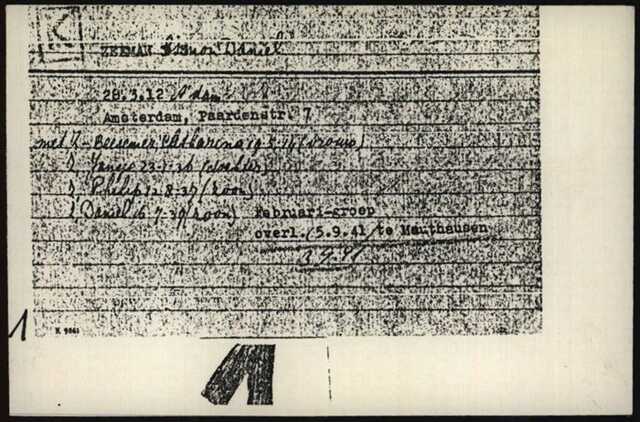 K
ZEEMAN Simon Daniel
28.3.12 A'dam
Amsterdam, Paardenstr. 7
met Z-Beesemer, Catharina 19.5.14 (vrouw)
Z Jansje 23-1-36 (dochter)
Z Philip 12-8-37 (zoon)
Z Daniel 16 7-39 (zoon) Februari-groep
overl. 5.9.41 te Mauthausen
9.41
1 K 9861
1